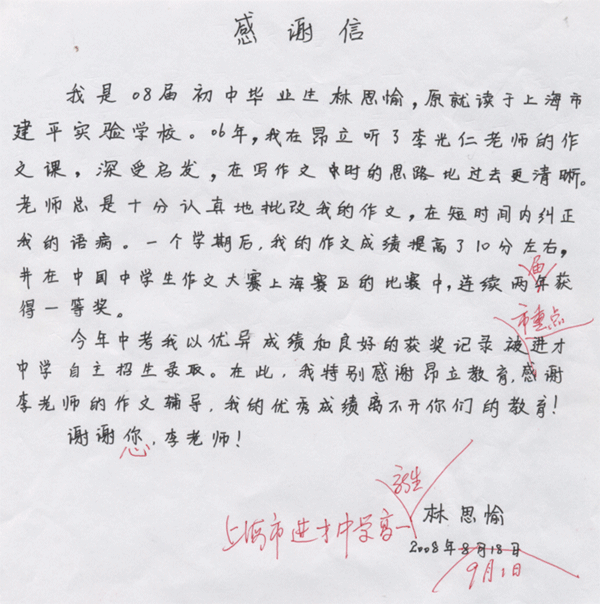 感谢信
我是08届初中毕业生林思愉,原就读于上海市
建平实验学校。06年,我在昂立听了李光仁老师的作
文课,深受启发,在写作文时的思路比过去更清晰。
老师总是十分认真地批改我的作文,在短时间内纠正
我的语病。一个学期后,我的作文成绩提高了10分左右,
并在中国中学生作文大赛上海赛区的比赛中,连续两年获
届
得一等奖。
市重点
今年中考我以优异成绩和良好的获奖记录被进才
中学自主招生录取。在此,我特别感谢昂立教育,感谢
李老师的作文辅导,我的优秀成绩离不开你们的教育!
谢谢您,李老师!
新生
林思愉
上海市进才中学高一
2008年8月18日
9月1日